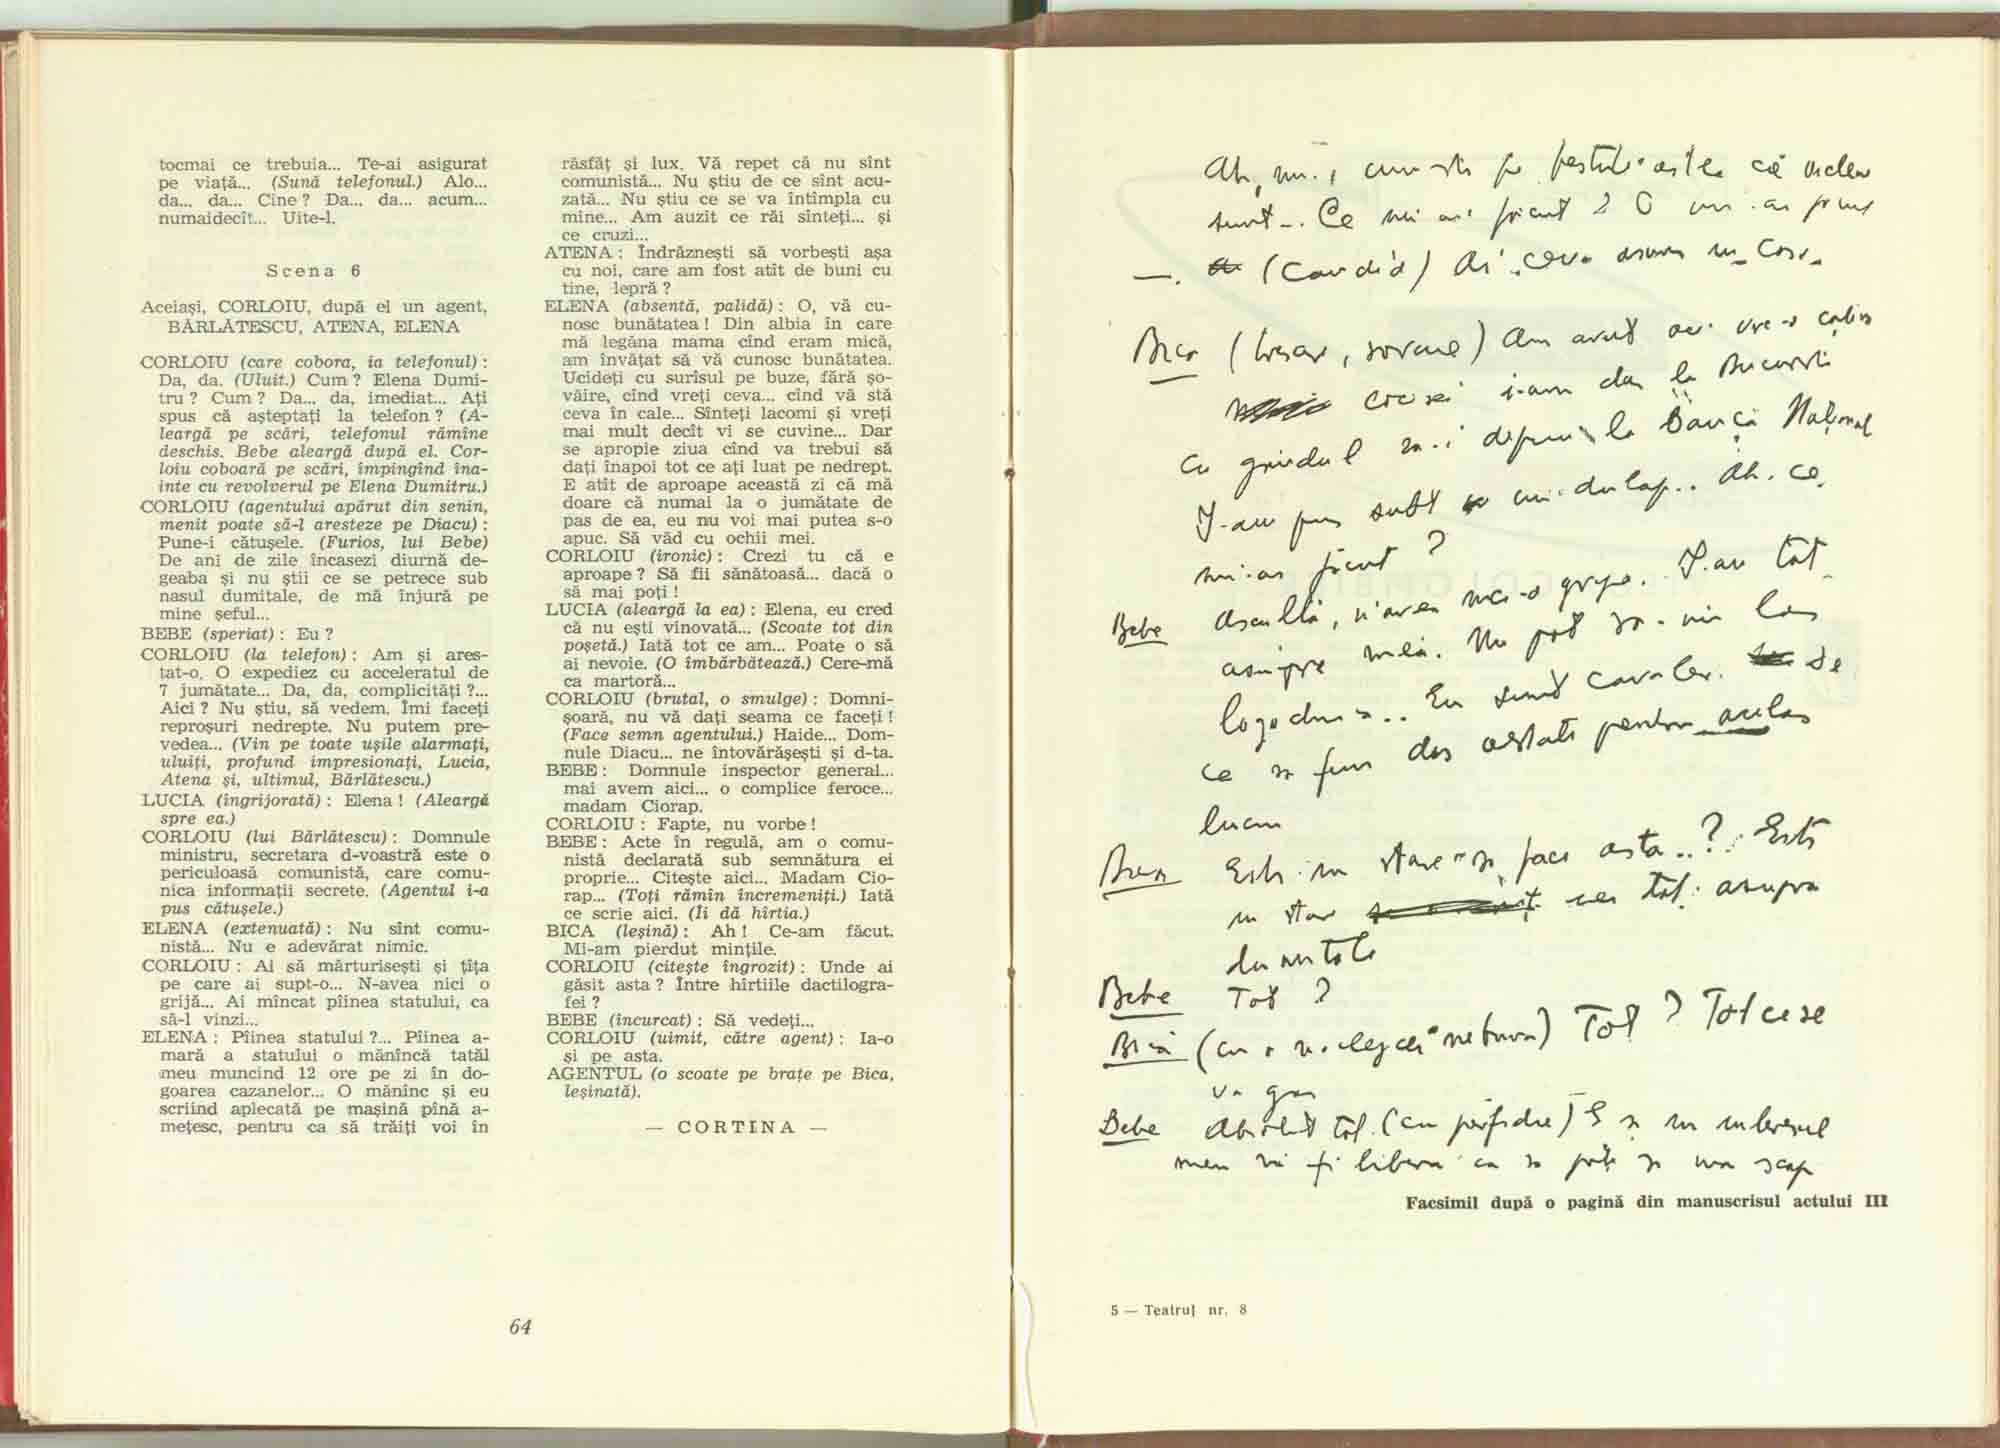 tocmai ce trebuia... Te-ai asigurat
pe viață... (Sună telefonul.) Alo...
da... da... Cine ? Da... da... acum...
numaidecît... Uite-l.
Scena 6
Aceiași, CORLOIU, după el un agent,
BĂRLĂTESCU, ATENA, ELENA
CORLOIU (care cobora, ia telefonul) :
Da, da. (Uluit.) Cum ? Elena Dumi-
tru ? Cum ? Da... da, imediat... Ați
spus că așteptați la telefon ? (A-
leargă pe scări, telefonul rămîne
deschis. Bebe aleargă după el. Cor-
loiu coboară pe scări, împingînd îna-
inte cu revolverul pe Elena Dumitru.)
CORLOIU (agentului apărut din senin,
menit poate să-l aresteze pe Diacu) :
Pune-i cătușele. (Furios, lui Bebe)
De ani de zile încasezi diurnă de-
geaba și nu știi ce se petrece sub
nasul dumitale, de mă înjură pe
mine șeful...
BEBE (speriat) : Eu ?
CORLOIU (la telefon) : Am și ares-
tat-o. O expediez cu acceleratul de
7 jumătate... Da, da, complicități ?...
Aici ? Nu știu, să vedem. Îmi faceți
reproșuri nedrepte. Nu putem pre-
vedea... (Vin pe toate ușile alarmați,
uluiți, profund impresionați, Lucia,
Atena și, ultimul, Bărlătescu.)
LUCIA (îngrijorată) : Elena ! (Aleargă
spre ea.)
CORLOIU (lui Bărlătescu) : Domnule
ministru, secretara d-voastră este o
periculoasă comunistă, care comu-
nica informații secrete. (Agentul i-a
pus cătușele.)
ELENA (extenuată) : Nu sînt comu-
nistă... Nu e adevărat nimic.
CORLOIU : Ai să mărturisești și țîța
pe care ai supt-o... N-avea nici o
grijă... Ai mîncat pîinea statului, ca
să-l vinzi...
ELENA : Pîinea statului ?... Pîinea a-
mară a statului o mănîncă tatăl
meu muncind 12 ore pe zi în do-
goarea cazanelor... O mănînc și eu
scriind aplecată pe mașină pînă a-
mețesc, pentru ca să trăiți voi în
răsfăț și lux. Vă repet că nu sînt
comunistă... Nu știu de ce sînt acu-
zată... Nu știu ce se va întîmpla cu
mine... Am auzit ce răi sînteți... și
ce cruzi...
ATENA : Îndrăznești să vorbești așa
cu noi, care am fost atît de buni cu
tine, lepră ?
ELENA (absentă, palidă) : O, vă cu-
nosc bunătatea ! Din albia în care
mă legăna mama cînd eram mică,
am învățat să vă cunosc bunătatea.
Ucideți cu surîsul pe buze, fără șo-
văire, cînd vreți ceva... cînd vă stă
ceva în cale... Sînteți lacomi și vreți
mai mult decît vi se cuvine... Dar
se apropie ziua cînd va trebui să
dați înapoi tot ce ați luat pe nedrept.
E atît de aproape această zi că mă
doare că numai la o jumătate de
pas de ea, eu nu voi mai putea s-o
apuc. Să văd cu ochii mei.
CORLOIU (ironic) : Crezi tu că e
aproape ? Să fii sănătoasă... dacă o
să mai poți !
LUCIA (aleargă la ea) : Elena, eu cred
că nu ești vinovată... (Scoate tot din
poșetă.) Iată tot ce am... Poate o să
ai nevoie. (O îmbărbătează.) Cere-mă
ca martoră...
CORLOIU (brutal, o smulge) : Domni-
șoară, nu vă dați seama ce faceți !
(Face semn agentului.) Haide... Dom-
nule Diacu... ne întovărășești și d-ta.
BEBE : Domnule inspector general...
mai avem aici... o complice feroce...
madam Ciorap.
CORLOIU : Fapte, nu vorbe !
BEBE : Acte în regulă, am o comu-
nistă declarată sub semnătura ei
proprie... Citește aici... Madam Cio-
rap... (Toți rămîn încremeniți.) Iată
ce scrie aici. (Îi dă hîrtia.)
BICA (leșină) : Ah ! Ce-am făcut.
Mi-am pierdut mințile.
CORLOIU (citește îngrozit) : Unde ai
găsit asta ? Între hîrtiile dactilogra-
fei ?
BEBE (încurcat) : Să vedeți...
CORLOIU (uimit, către agent) : Ia-o
și pe asta.
AGENTUL (o scoate pe brațe pe Bica,
leșinată).
— CORTINA —
64
sunt... Ce mi-ai făcut ?
(Candid) Ai ceva
Bica (tresare,
i-am dat la București
cu gîndul să-i depun la Banca Național
I-am pus subt un dulap.. Ah. ce
mi-ai făcut ?
Bebe Ascultă, n'avea nici-o grije. I-am tot
asupra mea. Nu pot să-mi las
logodnica.. Eu sunt cavaler. Se
ce să fim doi arestati pentru acelas
lucru
Bica Ești in stare să faci asta..? Ești
in stare iei tot asupra
dumitale
Bebe Tot ?
Bica (cu o nebună) Tot ? Tot ce se
va găsi
Bebe Absolut tot. (cu perfidie) E și in interesul
meu să fi liberă ca să poți să mă scapi
Facsimil după o pagină din manuscrisul actului III
5 — Teatrul nr. 8